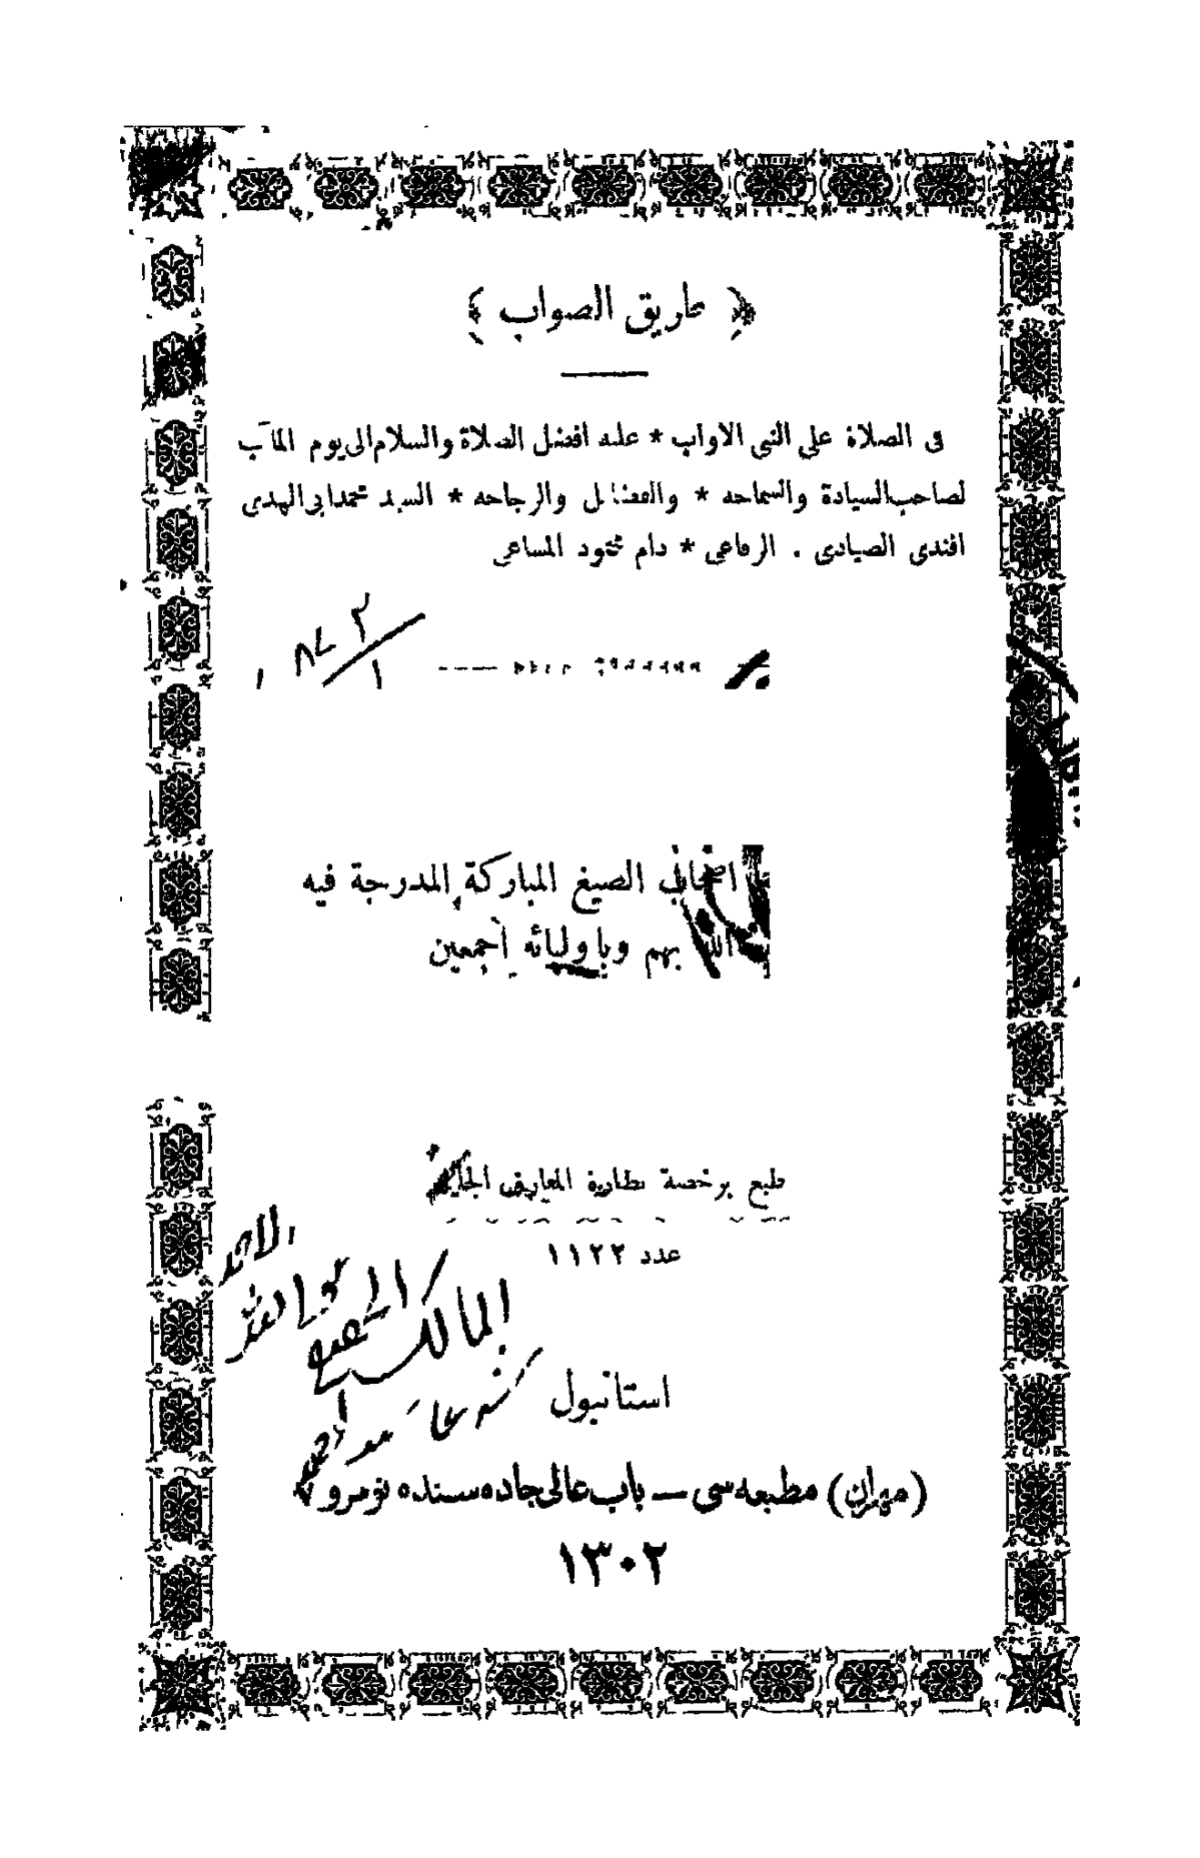 ﴿ طريق الصواب ﴾
فى الصلاة على النبى الاواب * عليه افضل الصلاة والسلام الى يوم المآب
لصاحب السيادة والسماحه * والفضايل والرجاحه * السيد محمد ابى الهدى
افندى الصيادى . الرفاعى * دام محمود المساعى
٢
١
اصحاب الصيغ المباركة المدرجة فيه
الله بهم وباوليائه أجمعين
طبع برخصة نظارة المعارف الجليلة
عدد ١١٢٢
المالك
استانبول
(مهران) مطبعه سى — باب عالى جاده سنده نومرو ٧
١٣٠٢